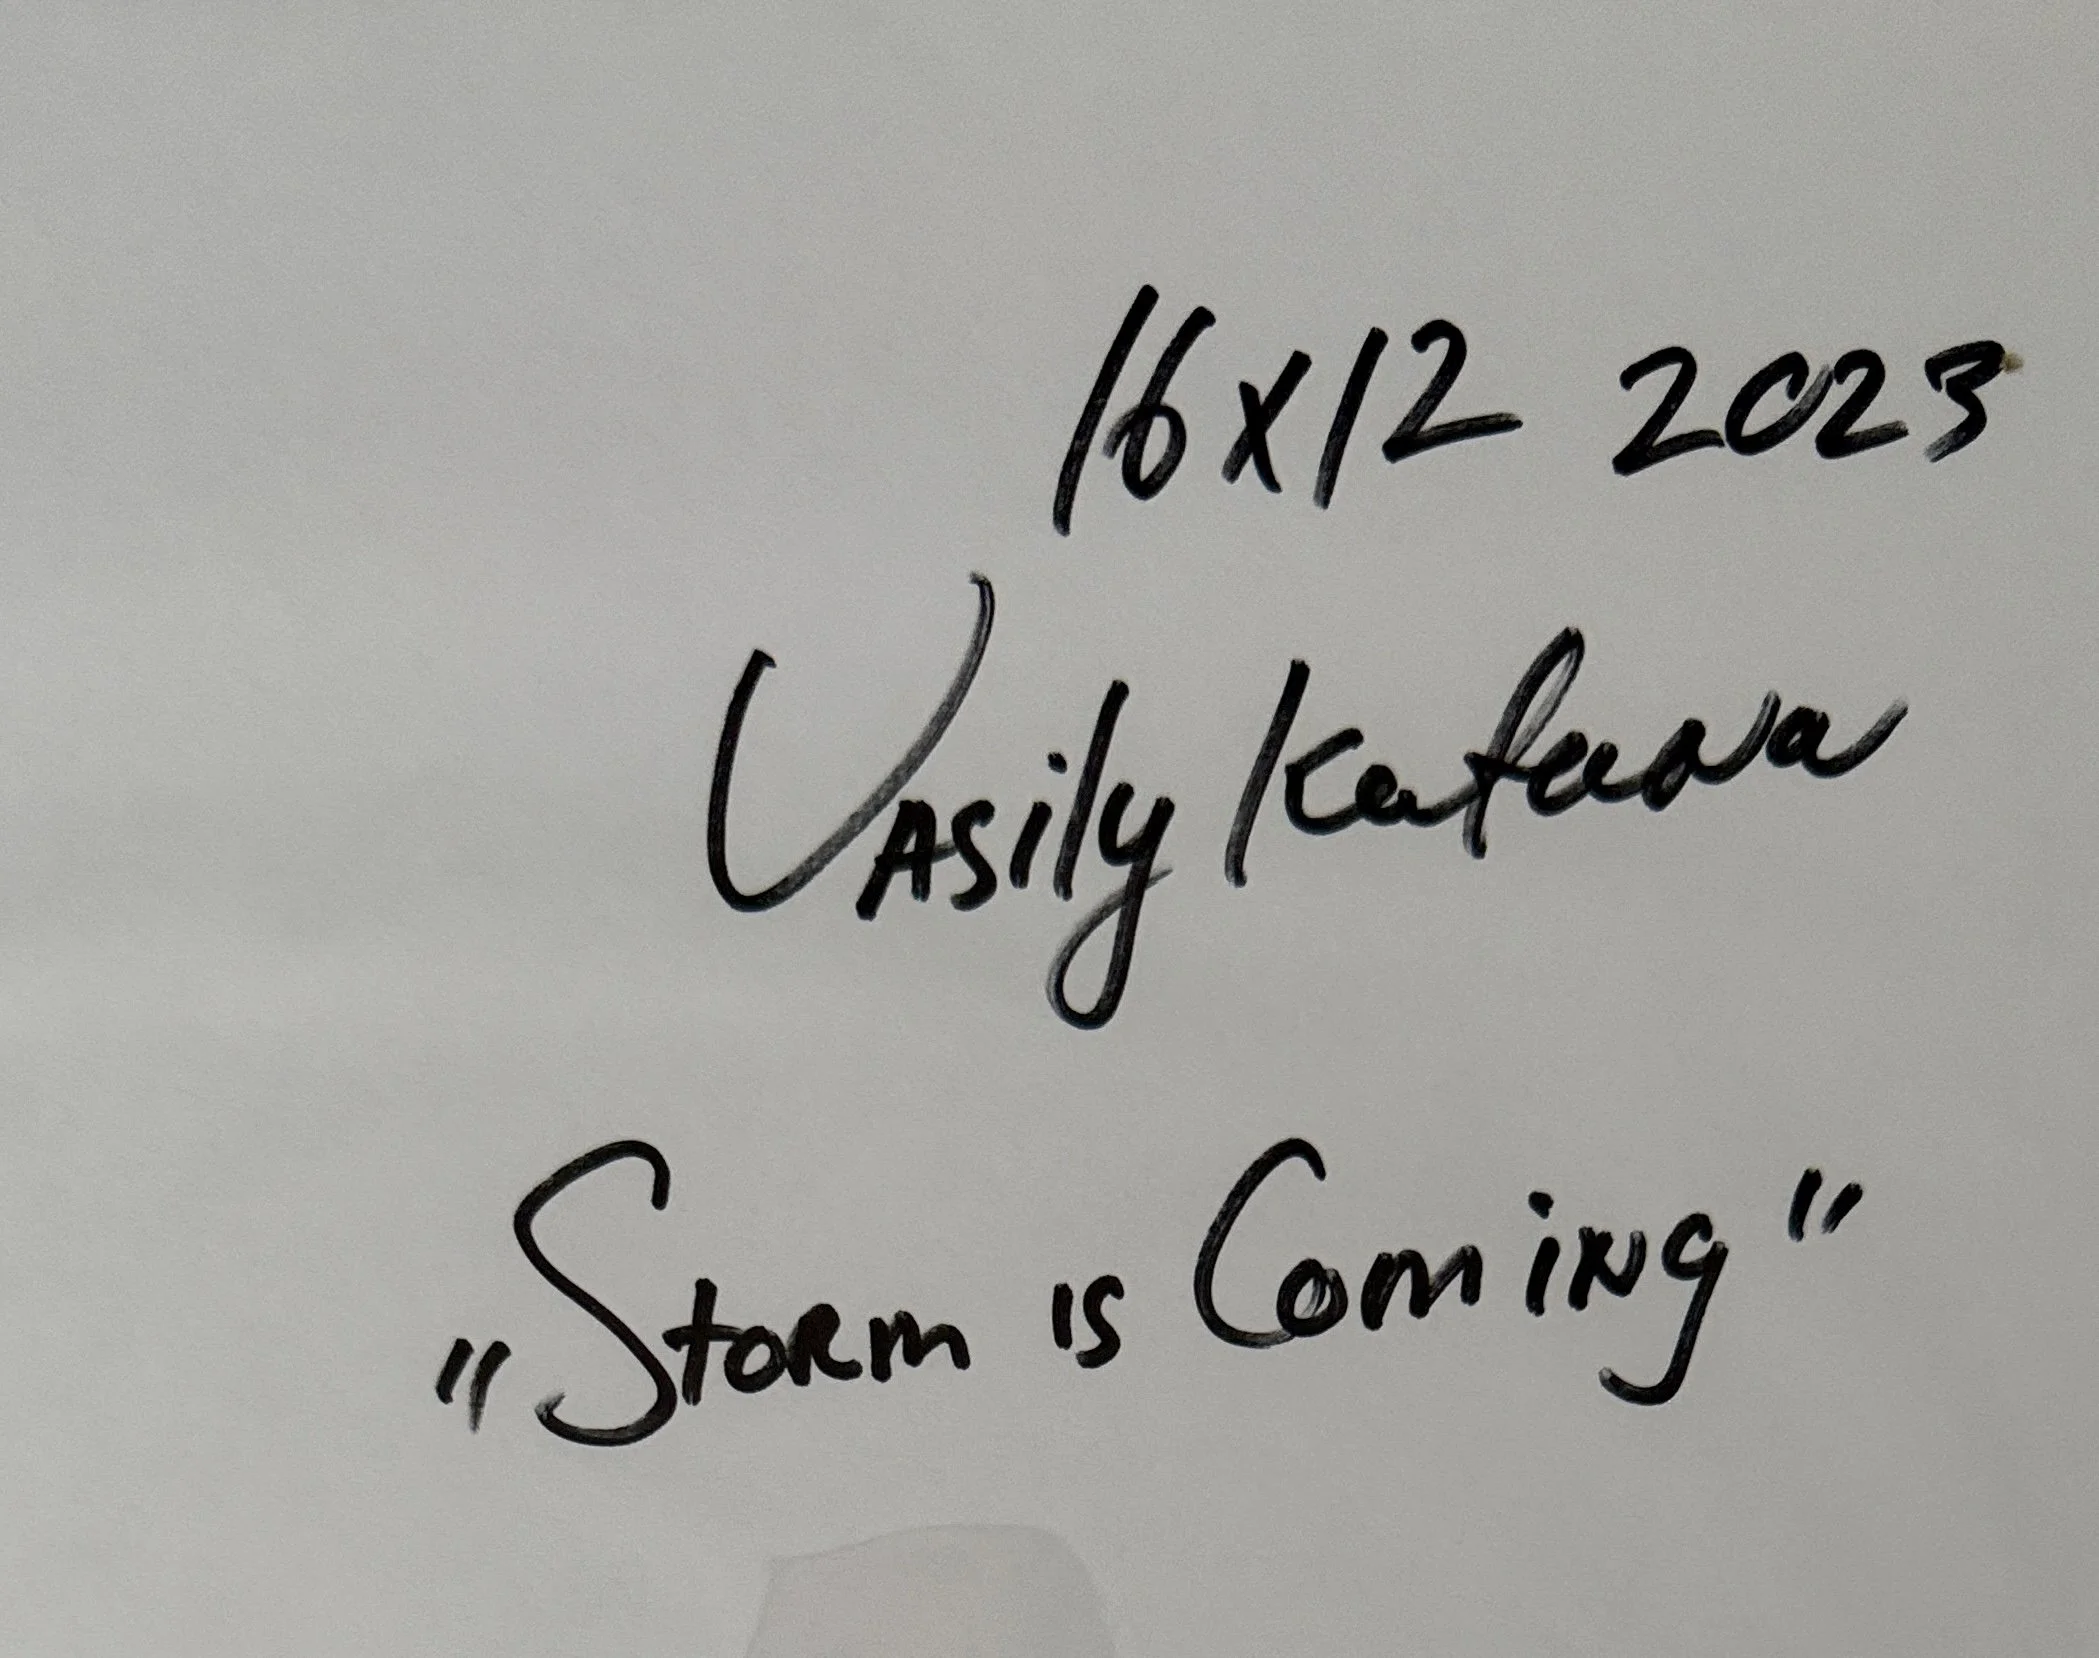 16x12 2023
Vasily Katana
"Storm is Coming"